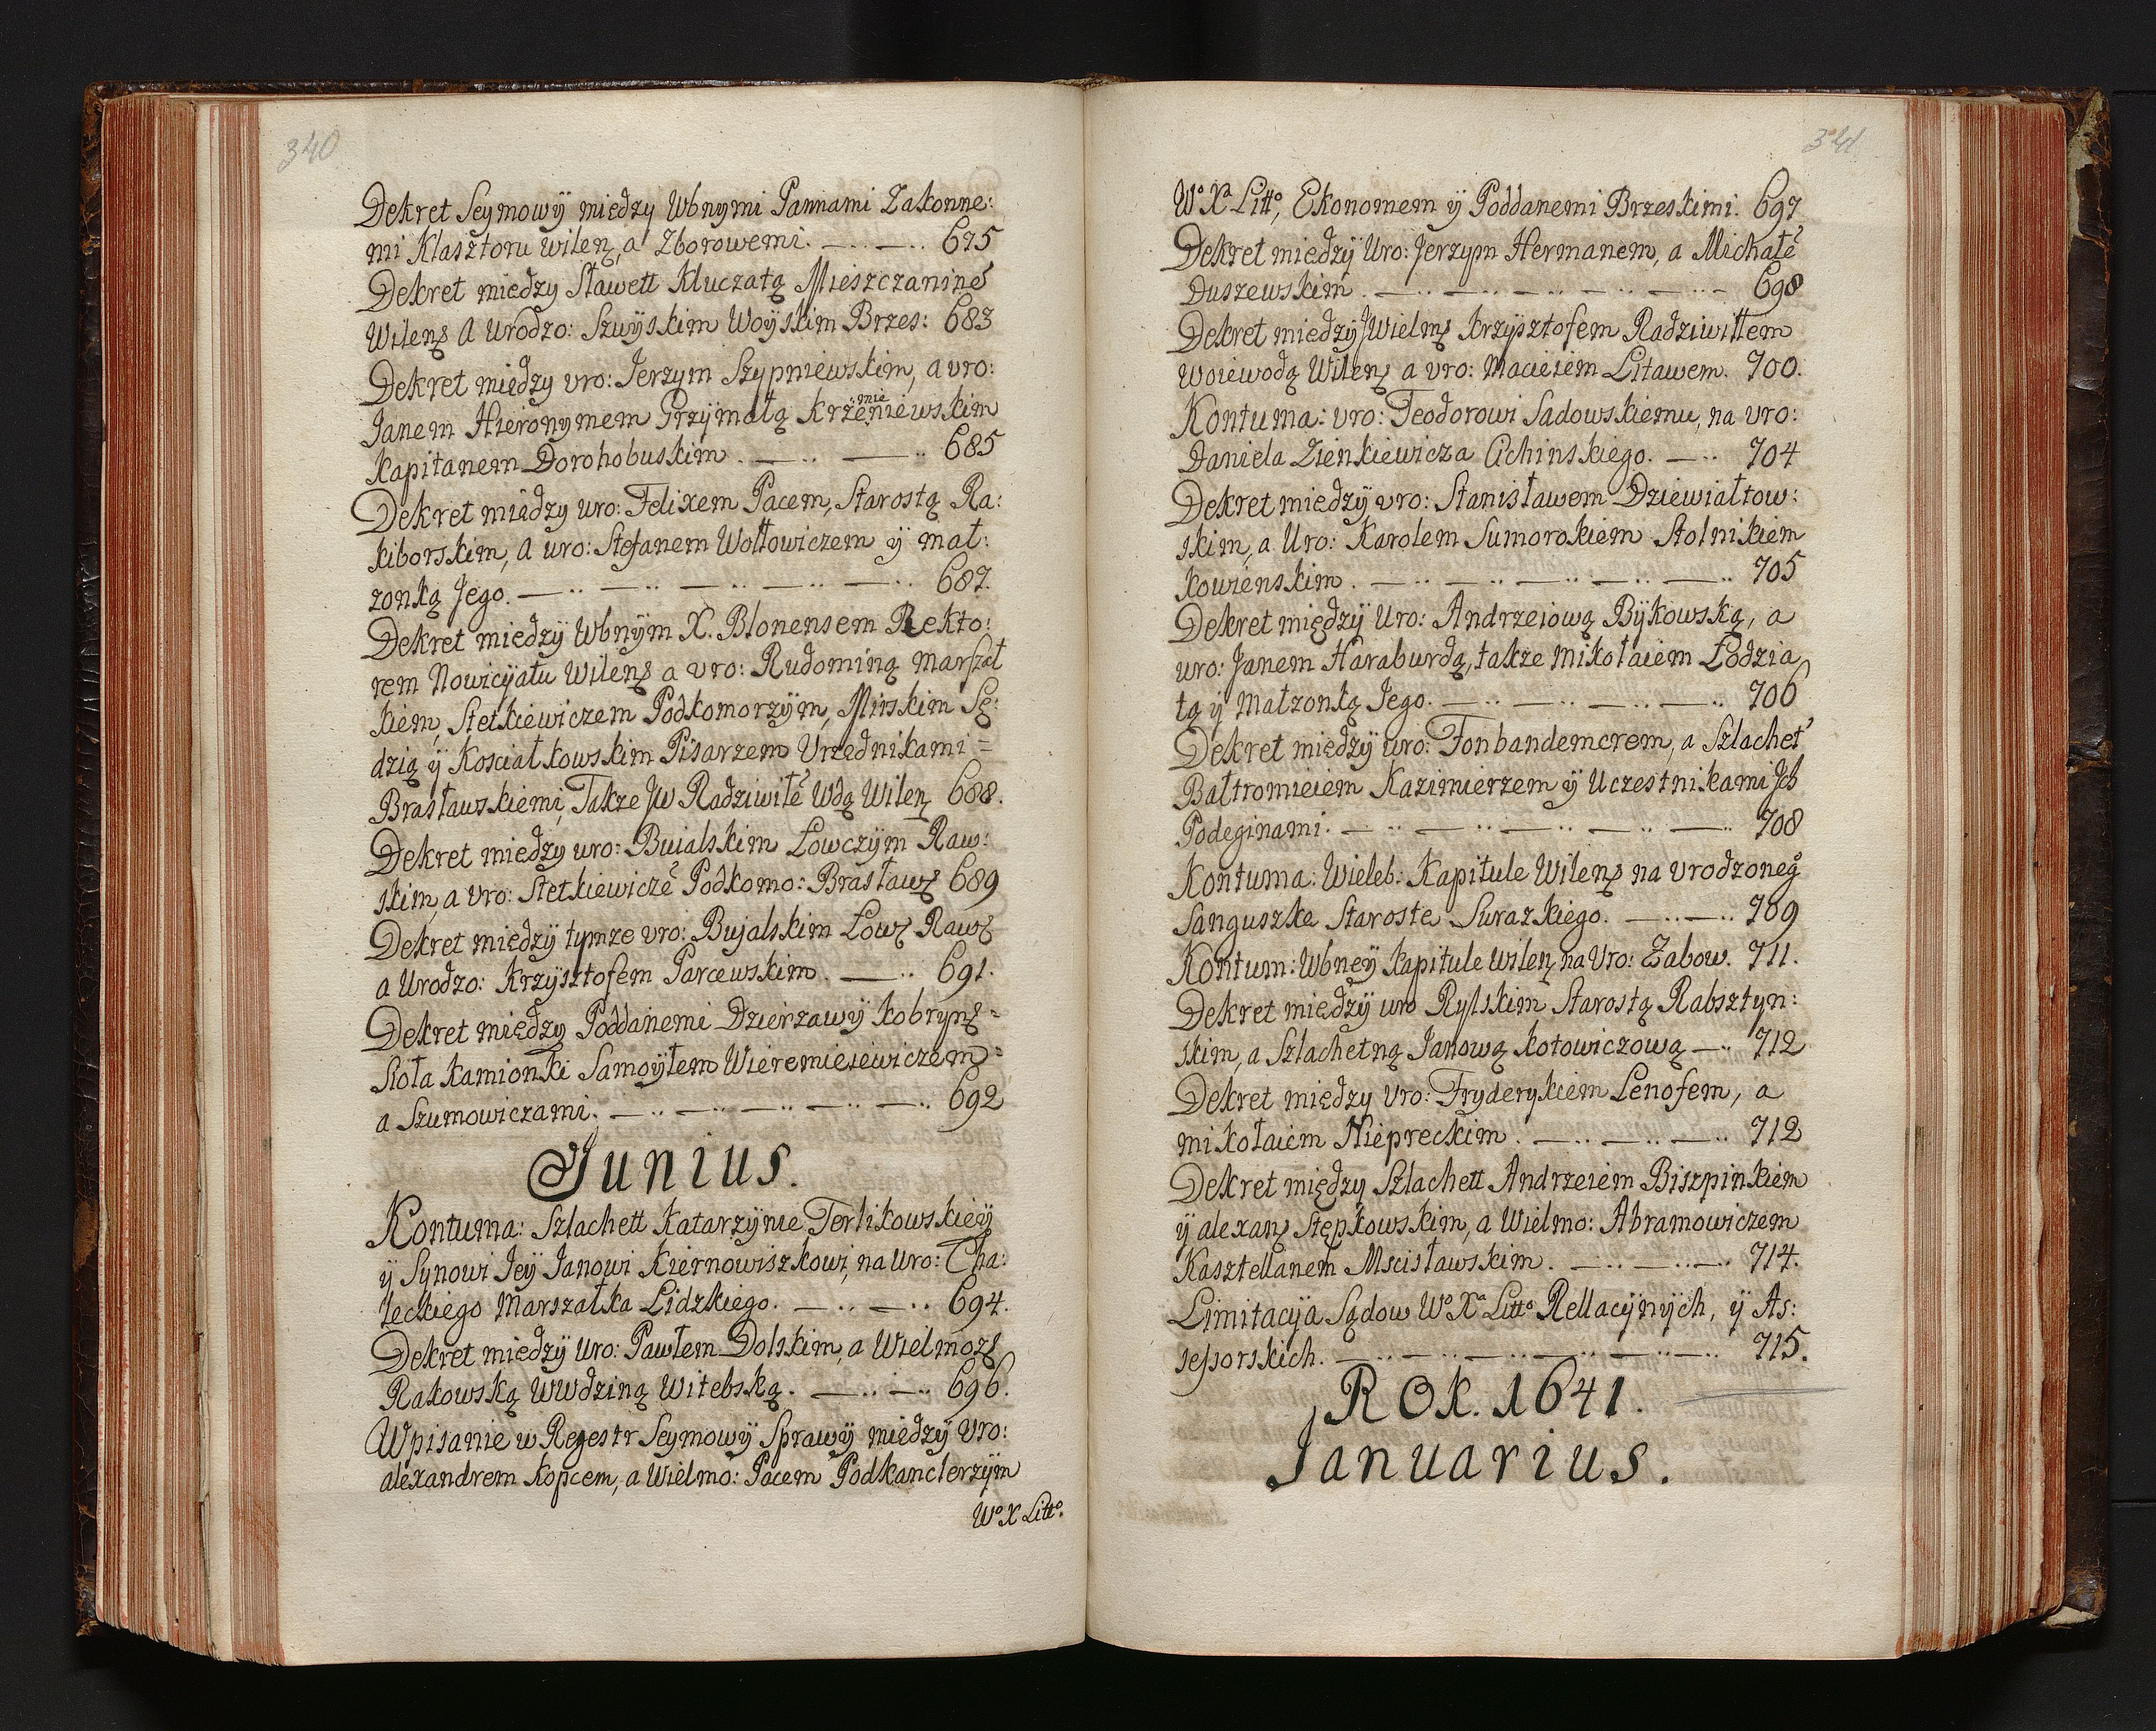 340
Dekret Seymowÿ między Wbnymi Pannami Zakonne:
mi Klasztoru Wilenȥ, a Zborowemi. 675
Dekret między Sławett Kluczatą Mieszczaninē
Wilenȥ a Urodzo: Szuÿskim Woÿskim Brzes: 683
Dekret między vro: Jerzym Szypniewskim, a vro:
Janem Hieronymem Przÿmałą Krzeniewskim
Kapitanem Dorohobuskim. 685
Dekret miądzy uro: Felixem Pacem, Starostą Ra:
kiborskim, a uro: Stefanem Wołłowiczem ÿ mał:
zonką Jego. 687.
Dekret miedzÿ Wbnÿm X. Blonensem Rekto:
rem Nowicÿatu Wilenȥ a vro: Rudominą Marszał
kiem, Stetkiewiczem Podkomorzÿm, Minskim Sę:
dzią ÿ Kosciałkowskim Pisarzem Urzednikami =
Brasławskiemi, Takze JW Radziwiłē Wdą Wilenȥ 688.
Dekret miedzy uro: Buialskim Łowczÿm Raw:
skim, a vro: Stetkiewiczē Podkomo: Brasławȥ 689
Dekret miedzÿ tymze vro: Bujalskim Łowȥ Rawȥ
a Urodzo: Krzysztofem Parcewskim. 691.
Dekret między Poddanemi Dzierzawÿ Kobrynȥ =
Sioła Kamionki Samoÿłem Wieremieiewiczem =
a Szumowiczami. 692
Junius.
Kontuma: Szlachett Katarzÿnie Terlikowskieÿ
ÿ Synowi Jeÿ Janowi Kiernowiszkowi, na uro: Cha:
leckiego Marszałka Lidzkiego. 694.
Dekret miedzÿ uro: Pawłem Dolskim, a Wielmozȥ
Rakowską WWdziną Witebską. 696.
Wpisanie w Regestr Seymowÿ Sprawÿ miedzÿ Vro:
alexandrem Kopcem, a Wielmo: Pacem Podkanclerzÿm
Wo X Litto.
341
Wo Xa Litto, Ekonomem ÿ Poddanemi Brzeskimi. 697
Dekret miedzÿ Uro: Jerzym Hermanem, a Michałē
Duszewskim. 698
Dekret miedzÿ JWielmȥ Krzÿsztofem Radziwiłłem
Woiewodą Wilenȥ a vro: Macieiem Litawem. 700.
Kontuma: vro: Teodorowi Sadowskiemu, na vro:
Daniela Zienkiewicza Cichinskiego. 704
Dekret miedzÿ vro: Stanisławem Dziewiałtow:
skim, a Uro: Karolem Sumorokiem Stolnikiem
Kowienskim. 705
Dekret międzÿ Uro: Andrzeiową Bÿkowską, a
uro: Janem Haraburdą, takze Mikołaiem Łodzia,
tą ÿ Małzonką Jego. 706
Dekret międzÿ uro: Fonbandemerem, a Szlachet
Bałtromieiem Kazimierzem ÿ Uczestnikami Jch
Podeginami. 708
Kontuma: Wieleb: Kapitule Wilenȥ na vrodzoneg°
Sanguszka Staroste Surazkiego. 709
Kontum: Wbneÿ Kapitule Wilenȥ na Vro: Zabow. 711.
Dekret międzÿ uro Rylskim Starostą Rabsztyn:
skim, a Szlachetną Janową Kotowiczową 712
Dekret między vro: Fryderykiem Lenofem, a
mikołaiem Niepreckim. 712
Dekret między Szlachett Andrzeiem Biszpinkiem
ÿ alexanȥ Stępkowskim, a Wielmo: Abramowiczem
Kasztellanem Mscisławskim. 714.
Limitacÿa Sądow Wo Xa Litto Rellacÿnÿch, ÿ As:
sessorskich. 715.
ROK. 1641.
Januarius.